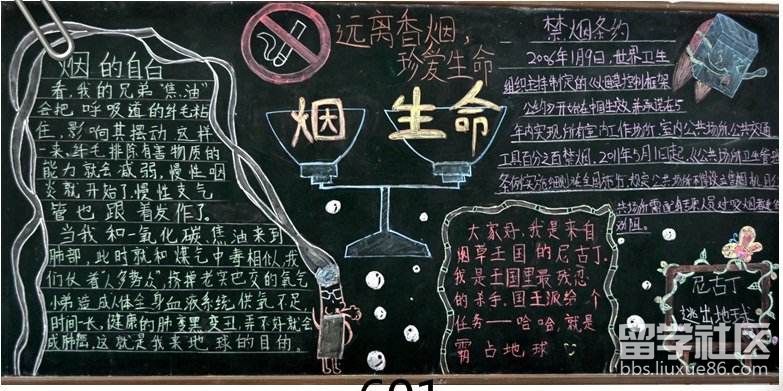 烟的自白
看,我的兄弟“焦油”
会把呼吸道的纤毛粘
住,影响其摆动这样
一来,纤毛排除有害物质的
能力就会减弱,慢性咽
炎就开始了,慢性支气
管也跟着发作了。
当我和一氧化碳焦油来到
肺部,此时就和煤气中毒相似,我
们仗着“人多势众”,挤掉老实巴交的氧气
小弟造成人体全身血液系统供氧不足,
时间一长,健康的肺变黑变丑,弄不好就会
成肺癌,这就是我来地球的目的。
远离香烟,
珍爱生命
烟 生命
禁烟条约
2006年1月9日,世界卫生
组织主持制定的《烟草控制框架
公约》开始在中国生效并承诺在5
年内实现所有室内工作场所,室内公共场所,公共交通
工具百分之百禁烟,2011年5月1日起,《公共场所卫生管理
条例实施细则》在全国
大家好,我是来自
烟草王国的尼古丁。
我是王国里最残忍
的杀手,国王派给个
任务——哈哈,就是
霸占地球
尼古丁
逃出地球
留学社区
bbs.liuxue86.com
601